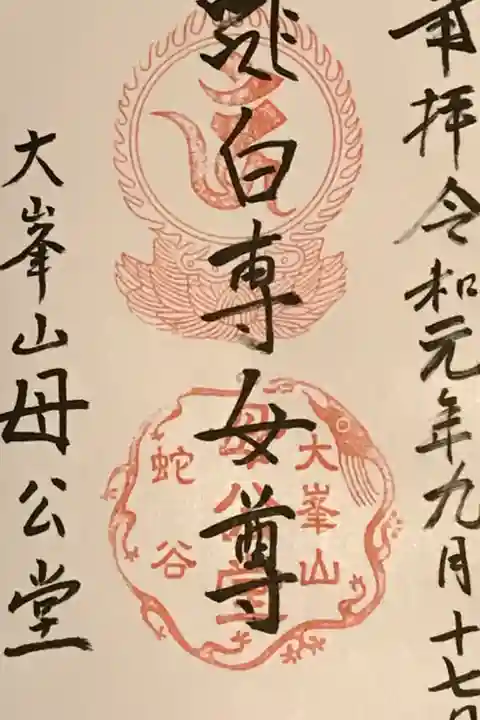 奉拝令和元年九月十七日
白専女尊
大峯山母公堂
大峯山
母公堂
蛇谷